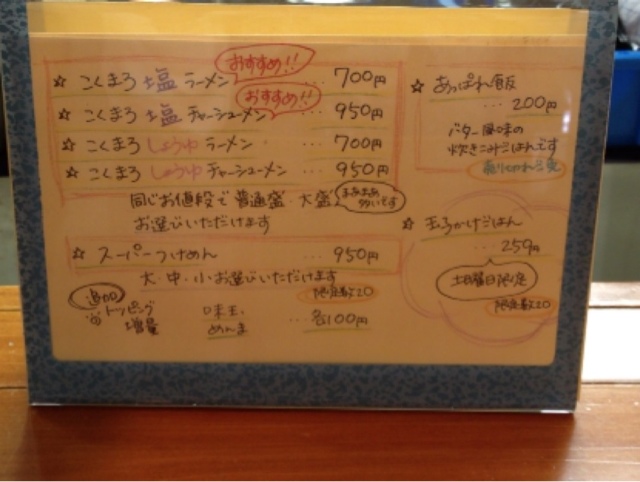 おすすめ!!
☆ こくまろ 塩 ラーメン ... 700円
おすすめ!!
☆ こくまろ 塩 チャーシューメン 950円
☆ こくまろ しょうゆ ラーメン 700円
☆ こくまろ しょうゆ チャーシューメン 950円
同じお値段で 普通盛・大盛
まあまあ
多いです
お選びいただけます
☆ スーパーつけめん ... 950円
大・中・小お選びいただけます
限定数20
追加
トッピング
増量
味玉
めんま ... 各100円
☆ あっぱれ飯
... 200円
バター風味の
炊きこみごはんです
売り切れ御免
☆ 玉子かけごはん
... 259円
土日曜日限定
限定数20